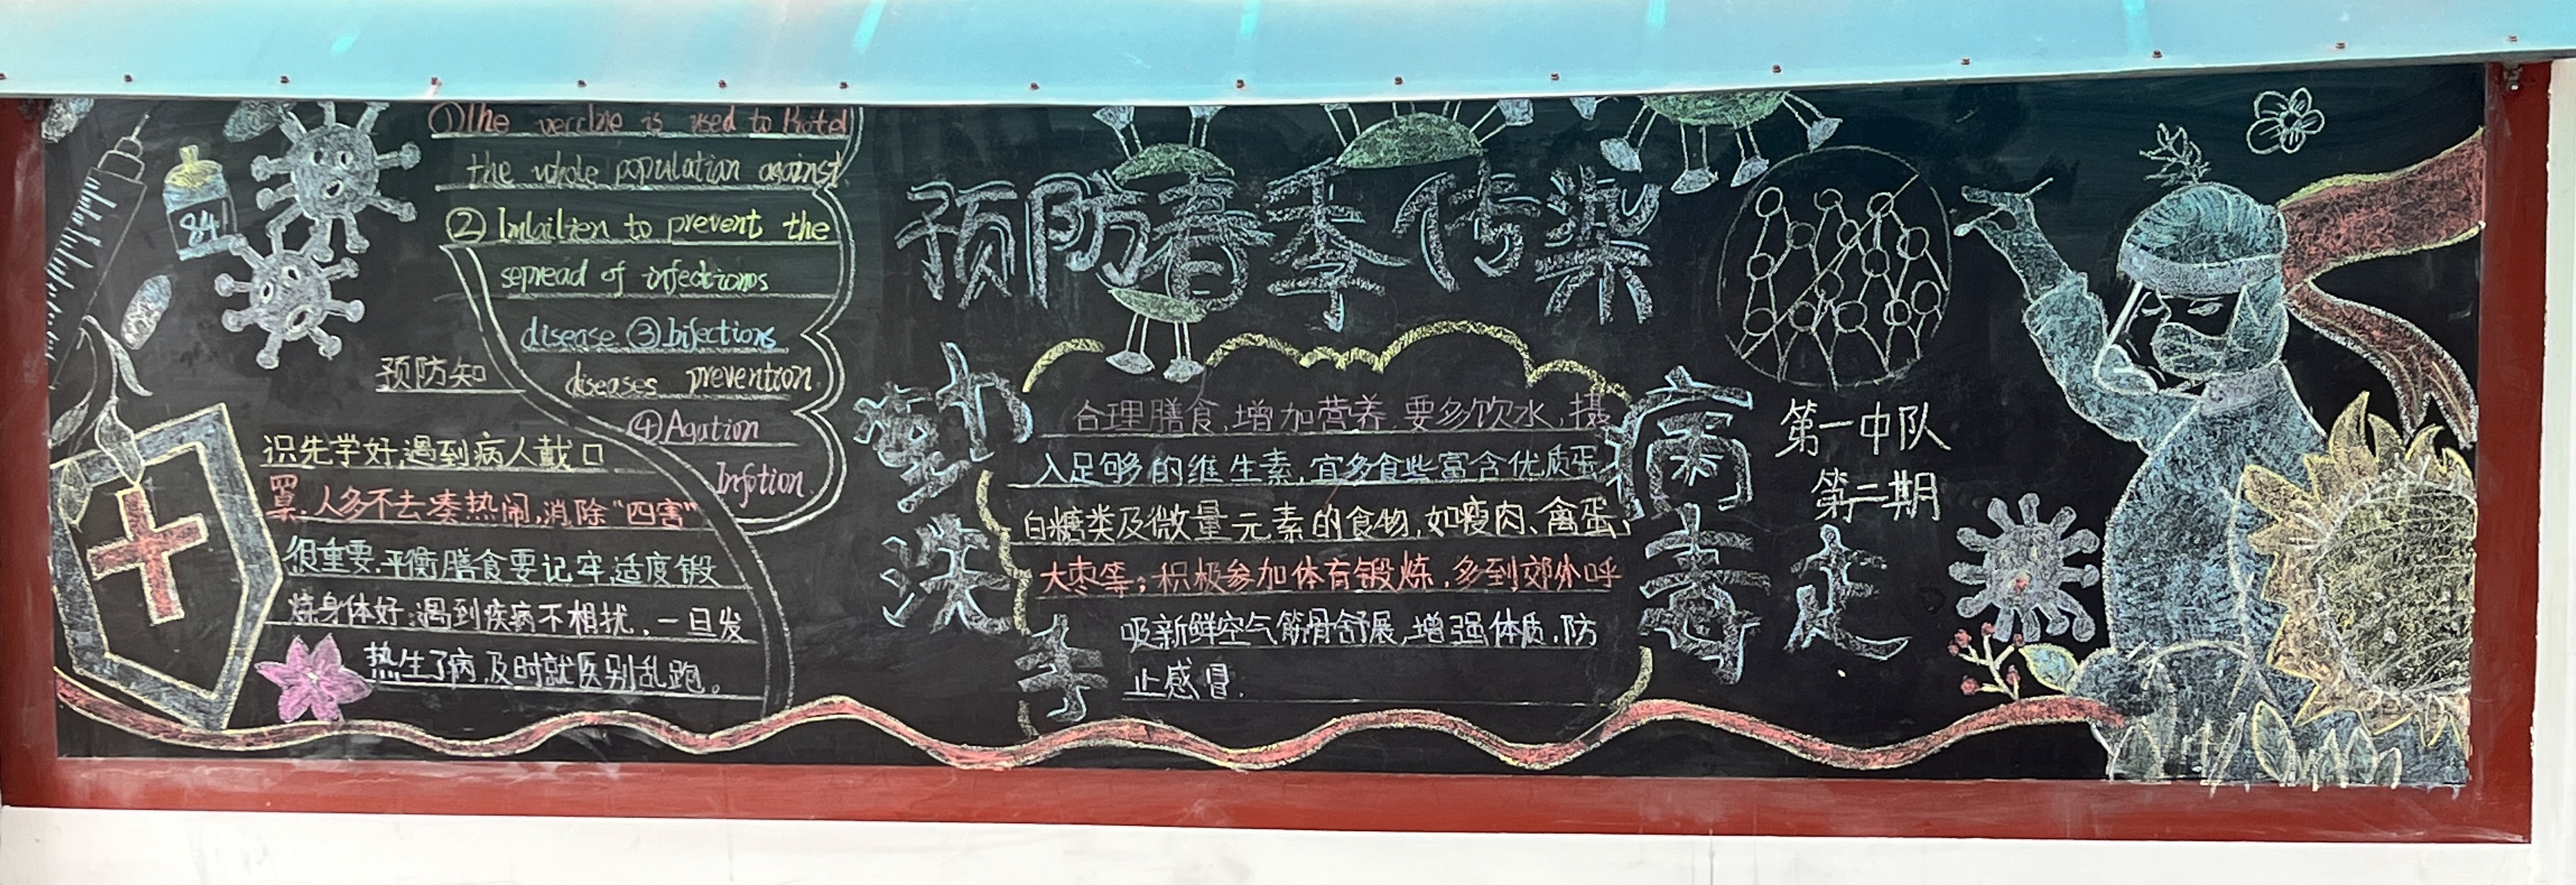 ①The vercine is used to Rotel
the whole population against
② Imlailien to prevent the
sepread of infectioms
disease ③ Bifections
diseases prevention
④Agation
Infotion
84
预防知
识先学好,遇到病人戴口
罩.人多不去凑热闹,消除“四害”
很重要.平衡膳食要记牢,适度锻
炼身体好;遇到疾病不相扰.一旦发
热生了病,及时就医别乱跑。
预防春季传染
勤洗手
病毒走
合理膳食,增加营养.要多饮水,摄
入足够的维生素,宜多食些富含优质蛋
白糖类及微量元素的食物,如瘦肉、禽蛋、
大枣等;积极参加体育锻炼,多到郊外呼
吸新鲜空气筋骨舒展,增强体质,防
止感冒.
第一中队
第二期